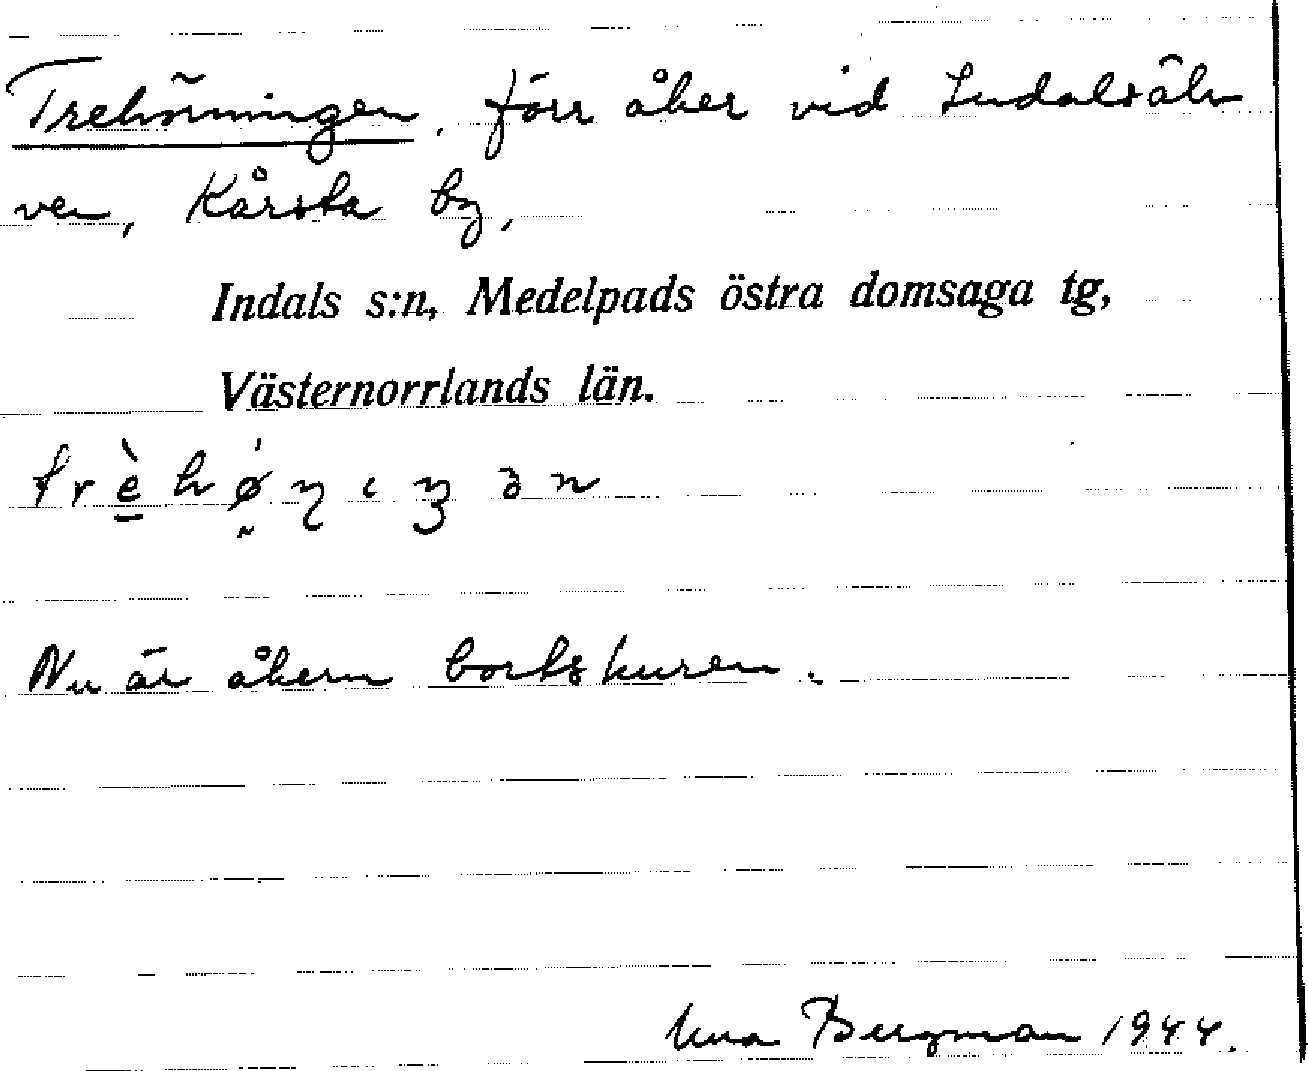 Trehörningen, förr åker vid Indalsälv
ven, Kårsta by,
Indals s:n, Medelpads östra domsaga tg,
Västernorrlands län.
Nu är åkern bortskuren.
Bergman 1944.